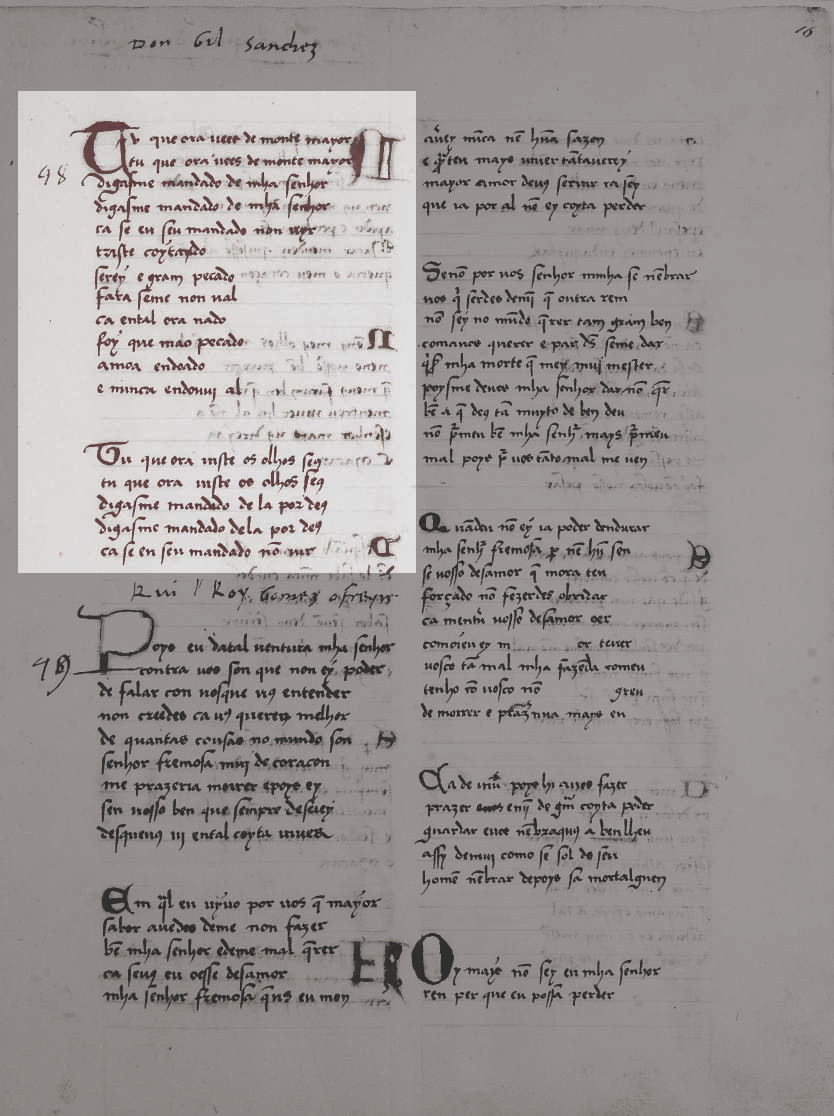 Don Gil Sanchez
16
Tu que ora uees de monte mayor
tu que ora uees de monte mayor
digasme mandado de mha senhor
digasme mandado de mha senhor
ca se eu seu mandado non uyr
triste coytando
serey e gram pecado
fara seme non ual
ca ental ora nado
foy que mao pecado
amoa endoado
e nunca endouui al
98
Tu que ora uiste os olhos seus
tu que ora uiste os olhos seus
digasme mandado de la por deus
digasme mandado dela por deus
ca se en seu mandado nõ uir
Rui Roy Gomes o freyre
99
Poys eu datal uentura mha senhor
contra uos son que non ey poder
de falar con uosque uus entender
non creedes ca uus quereu melhor
de quantas cousas no mundo son
senhor fremosa mui de coracon
me prazeria morrer epoys ey
sen uosso ben que sempre deseiey
desqueuus ui ental coyta uiuerei
Em q̃l eu uyuo por uos q̃ mayor
sabor auedes deme non fazer
bẽ mha senhor edeme mal q̃rer
ca seuus eu oesse desamor
mha senhor fremosa q̃uus eu mon
auey nũca nẽ hũa sazon
e p̃ ten mays uiuer tã tauerey
mayor amor deuus seruir ca sey
que ia por al nẽ ey coyta perder
Senõ por uos senhor minha se nẽbrar
uos q̃ serdes demĩ q̃ outra rem
nõ sey no mũdo q̃rer tam gram ben
comauos querer e par ds seme dar
mha morte q̃ mey mui mester
poysme deuos mha senhor dar nõ q̃r
bẽ a q̃ deus tã muyto de ben deu
nõ p̃meu bẽ mha senhr mays p̃ meu
mal poys p̃ uos tãto mal me uen
Q uandeu nõ ey ia poder dendurar
mha senhr fremosa p nẽ hũ sen
se uosso desamor q̃ mora ten
forçado nõ fezerdes obridar
ca mentr uosso desamor oer
comoieu ey m er teuer
uosco tã mal mha fazẽda comeu
tenho cõ uosco nõ greu
de morrer e mays eu
Ca de uiu poys hi aueo fazer
prazer enĩ de grã coyta p̃der
guardar euos nẽbraquus a ben lheu
assy demui como se sol do seu
homẽ nẽbrar depoys sa mortalguen
Oy mays nõ sey eu mha senhor
ren per que eu possa perder